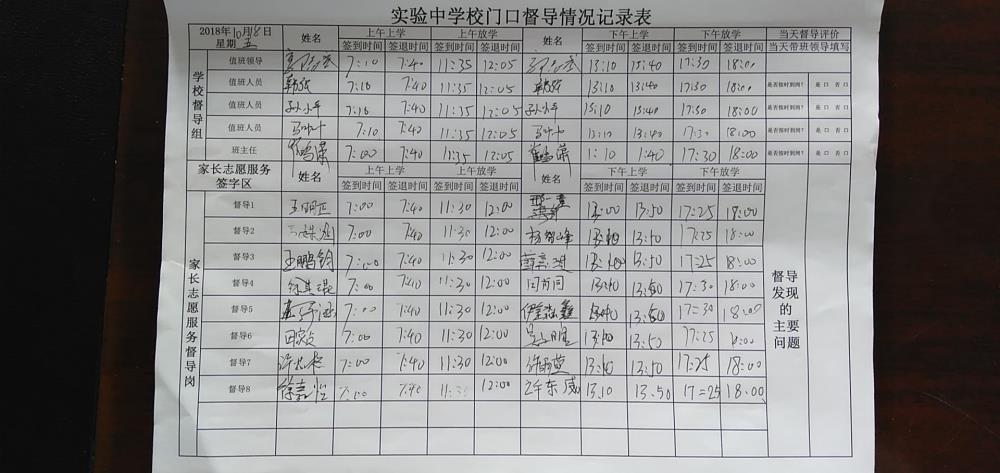 实验中学校门口督导情况记录表
2018年10月18日 星期五 姓名 上午上学 上午放学 姓名 下午上学 下午放学 当天督导评价
签到时间 签退时间 签到时间 签退时间 签到时间 签退时间 签到时间 签退时间 当天带班领导填写
学校督导组
值班领导 7:10 7:40 11:35 12:05 13:10 13:40 17:30 18:00
值班人员 7:10 7:40 11:35 12:05 13:10 13:40 17:30 18:00 是否按时到岗? 是口 否口
值班人员 孙小平 7:10 7:40 11:35 12:05 孙小平 13:10 13:40 17:30 18:00 是否按时到岗? 是口 否口
值班人员 7:10 7:40 11:35 12:05 13:10 13:40 17:30 18:00 是否按时到岗? 是口 否口
班主任 7:00 7:40 11:35 12:05 1:10 1:40 17:30 18:00 是否按时到岗? 是口 否口
家长志愿服务签字区 姓名 上午上学 上午放学 姓名 下午上学 下午放学
签到时间 签退时间 签到时间 签退时间 签到时间 签退时间 签到时间 签退时间
家长志愿服务督导岗
督导1 王明正 7:00 7:40 11:30 12:00 13:00 13:50 17:25 18:00
督导2 7:00 7:40 11:30 12:00 杨智峰 13:50 17:25 18:00
督导3 王鹏钧 7:00 7:40 11:30 12:00 13:50 17:25 18:00
督导4 徐其琨 7:00 7:40 11:30 12:00 13:50 17:30 18:00
督导5 7:00 7:40 11:30 12:00 13:50 17:30 18:00
督导6 7:00 7:40 11:30 12:00 13:50 17:25
督导7 7:00 7:40 11:30 12:00 13:50 17:25 18:00
督导8 徐嘉怡 7:00 7:40 12:00 许东威 13:10 13:50 17:25 18:00
督导发现的主要问题